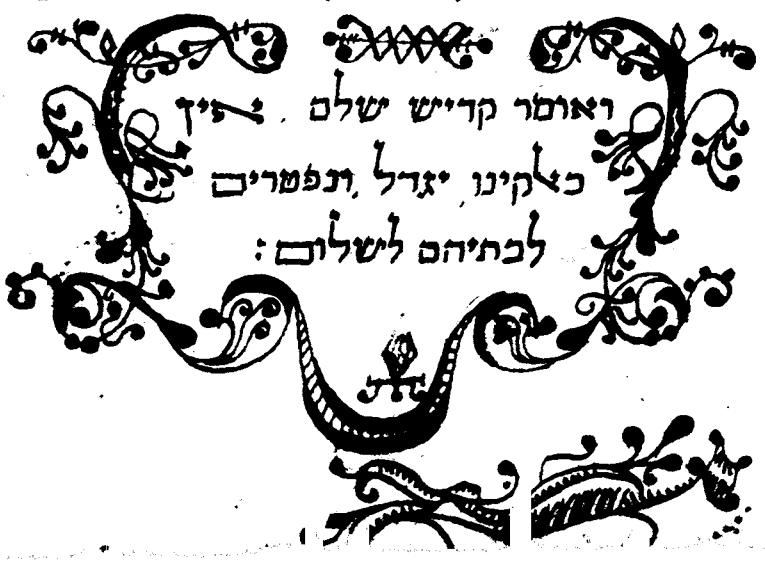 ואומר קדיש שלם . אין
כאלקינו, יגדל, ונפטרים
לבתיהם לשלום :